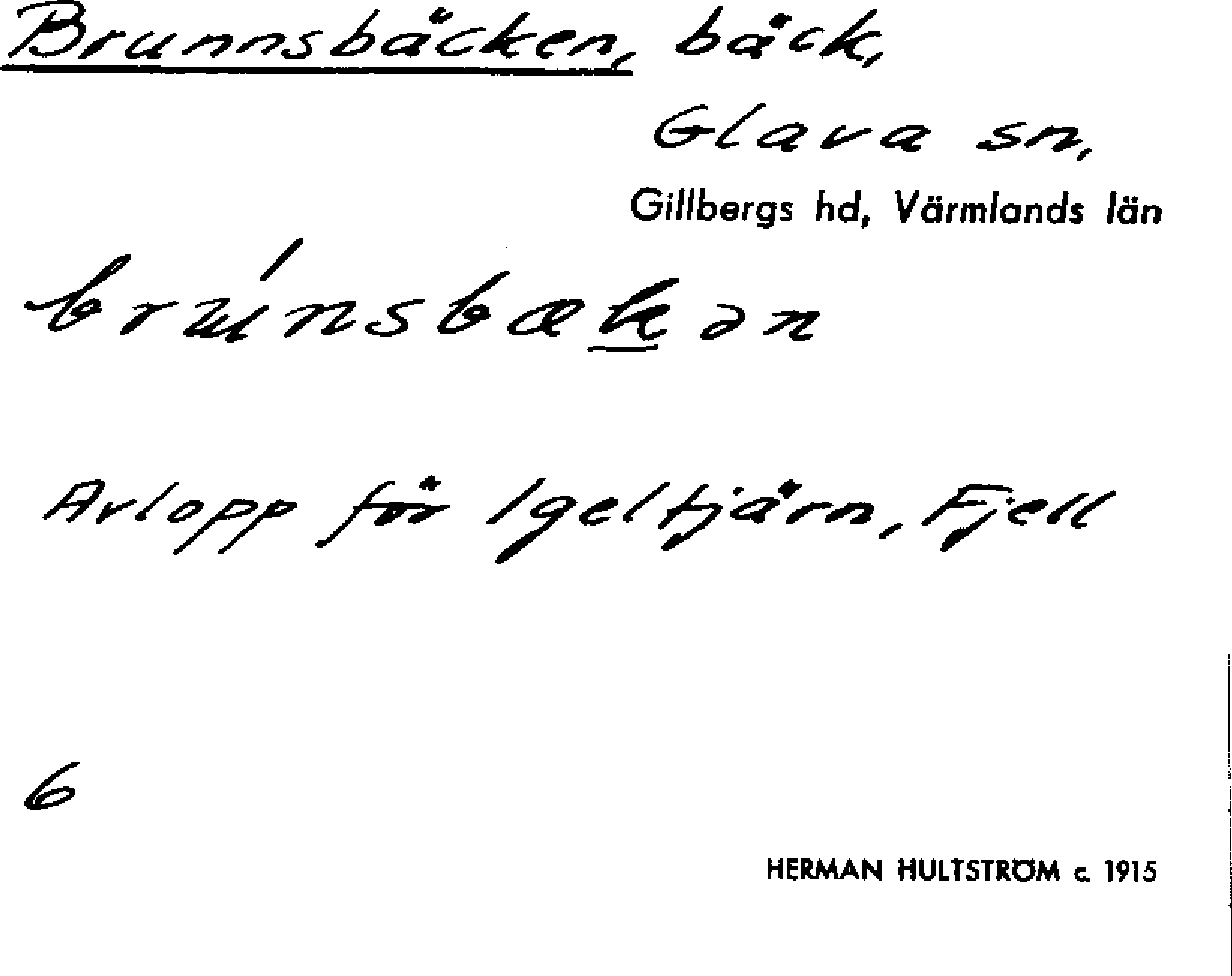 Brunnsbäcken, bäck,
Glava sn,
Gillbergs hd, Värmlands län
bruńsbækən
Avlopp för Igeltjärn, Fjell
6
HERMAN HULTSTRÖM c. 1915